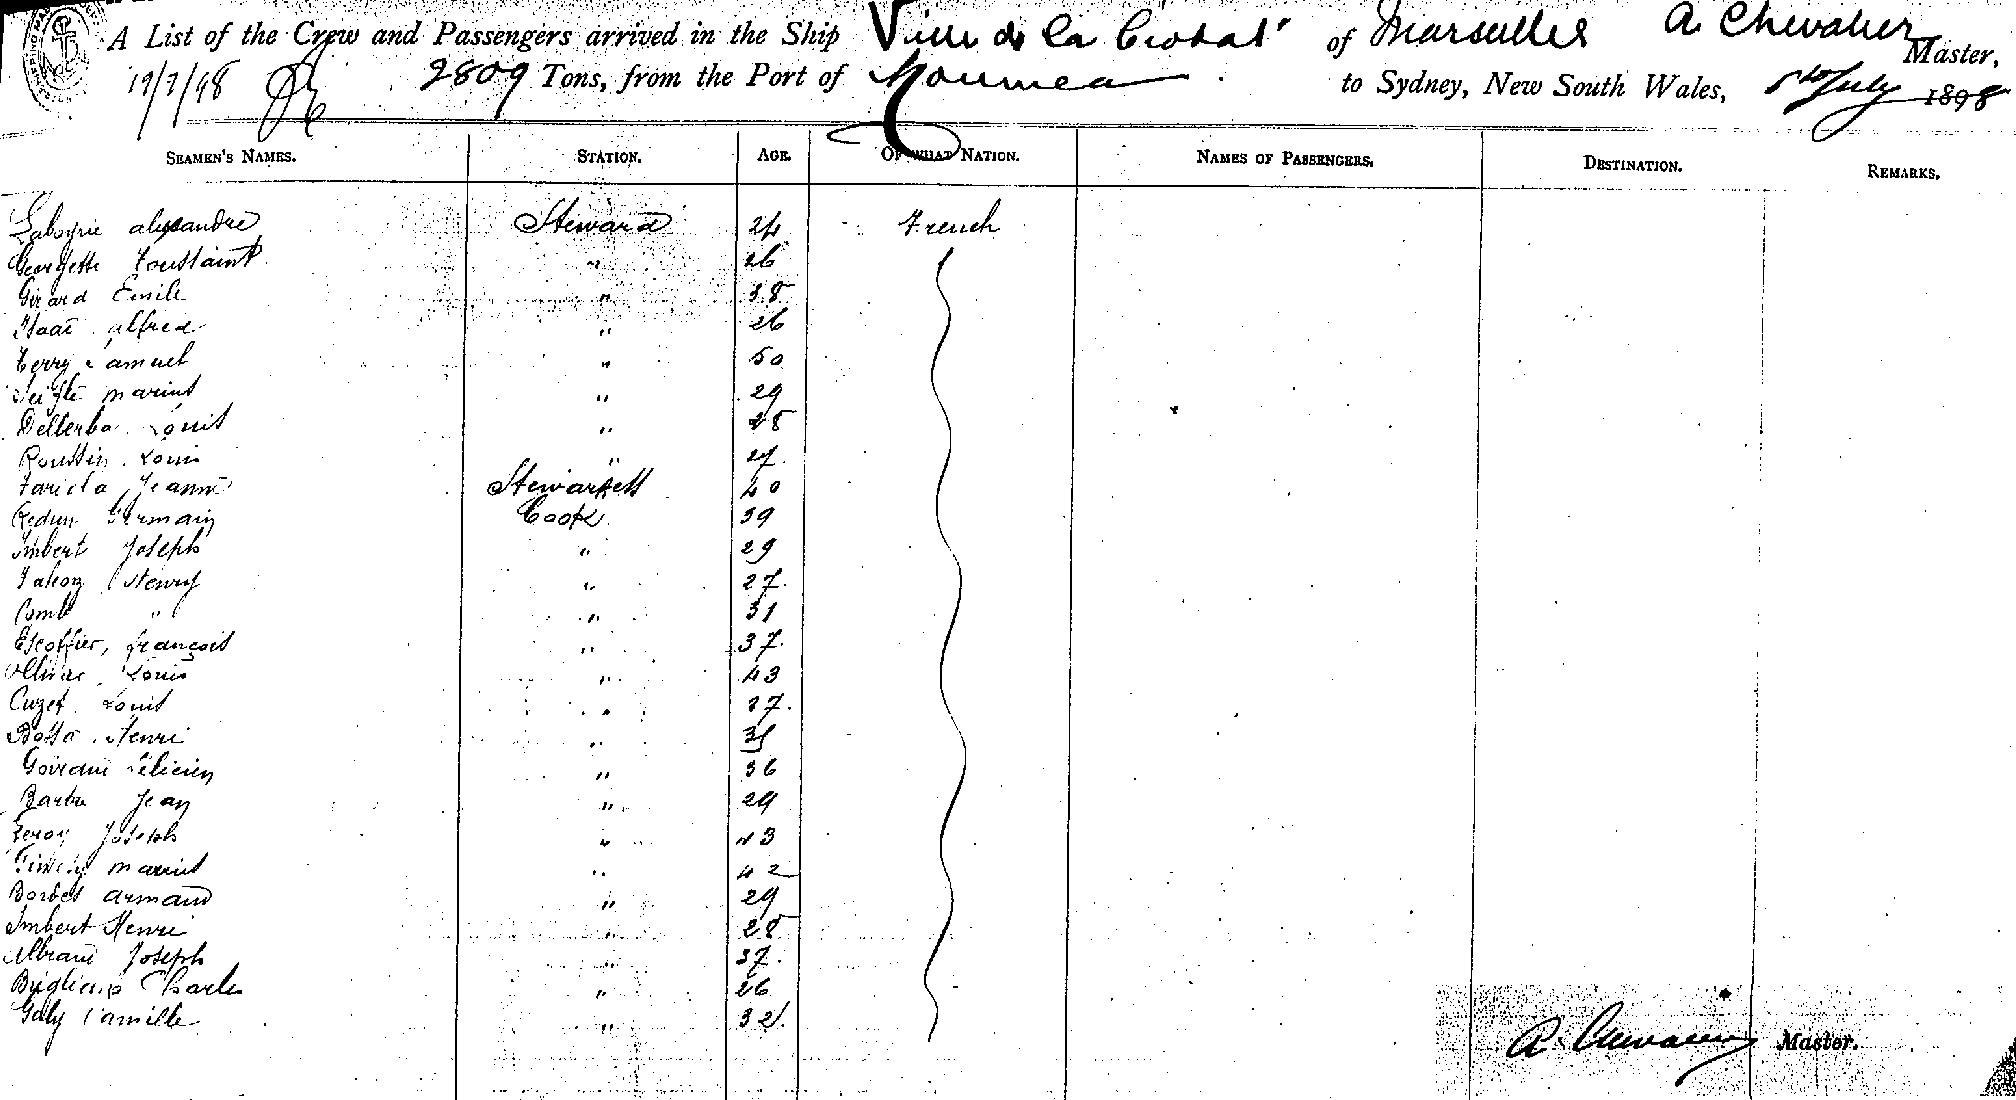 A List of the Crew and Passengers arrived in the Ship Ville de la Ciotat of Marseilles A Chevalier Master,
2809 Tons, from the Port of Noumea to Sydney, New South Wales, July 1898
SEAMEN'S NAMES. STATION. AGE. OF WHAT NATION. NAMES OF PASSENGERS. DESTINATION. REMARKS.
alexandre Steward 24 French
Georgette Toussaint " 26
Girard Emile " 38
Isaac alfred " 26
Samuel " 50
marius " 29
Dellerba Louis " 28
Roustin Louis " 27
Jeanne Stewardess 40
Germain Cook 39
Imbert Joseph " 29
Henry " 27
Comb " " 31
Escoffier, françois " 37
Louis " 43
Cuzet Louis " 27
Botto Henri "
Goirani Félicien " 36
Barbe Jean " 29
Leroy Joseph " 43
marius " 42
Bordes armand " 29
Imbert Henri " 28
Albrani Joseph " 37
Charles " 26
Galy Camille " 32
A. Chevalier Master.